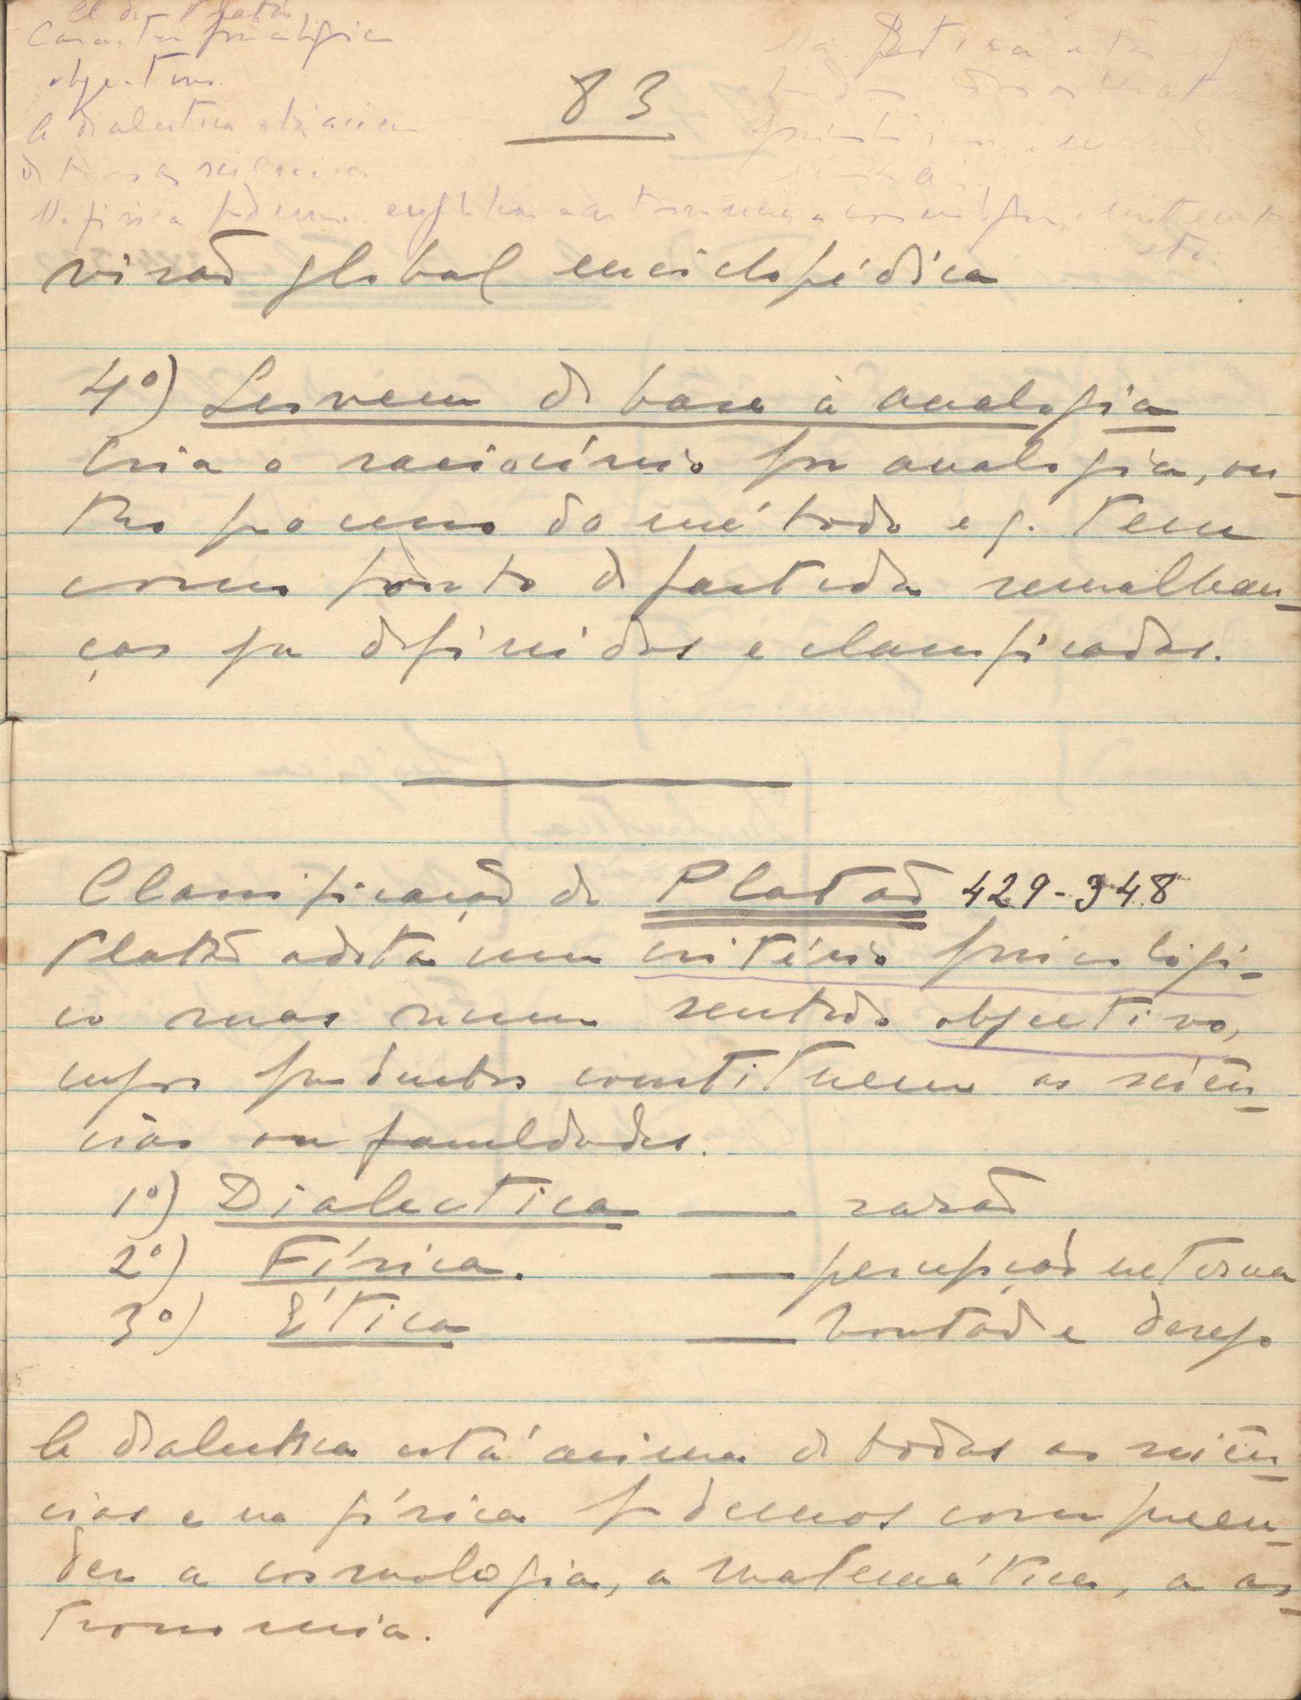 Cl. de Platão
Caracter psicológico
objectivo.
83
A dialectica está acima
de todas as ciencias
Na física podemos englobar a astronomia a cosmologia,
visão global enciclopédica
4º) Servem de base à analogia
Cria o raciocínio por analogia, ou-
tro processo do método e q. tem
como ponto de partida semelhan-
ças já definidas e classificadas.
Classificação de Platão 429-348
Platão adota um critério psicológi-
co mas num sentido objectivo,
cujos productos constituem as ciên-
cias ou faculdades.
1º) Dialectica — razão
2º) Física. — percepção externa
3º) Ética — Vontade e desejo
A dialectica está acima de todas as ciên-
cias e na física podemos compreen-
der a cosmologia, a matemática, a as-
tronomia.